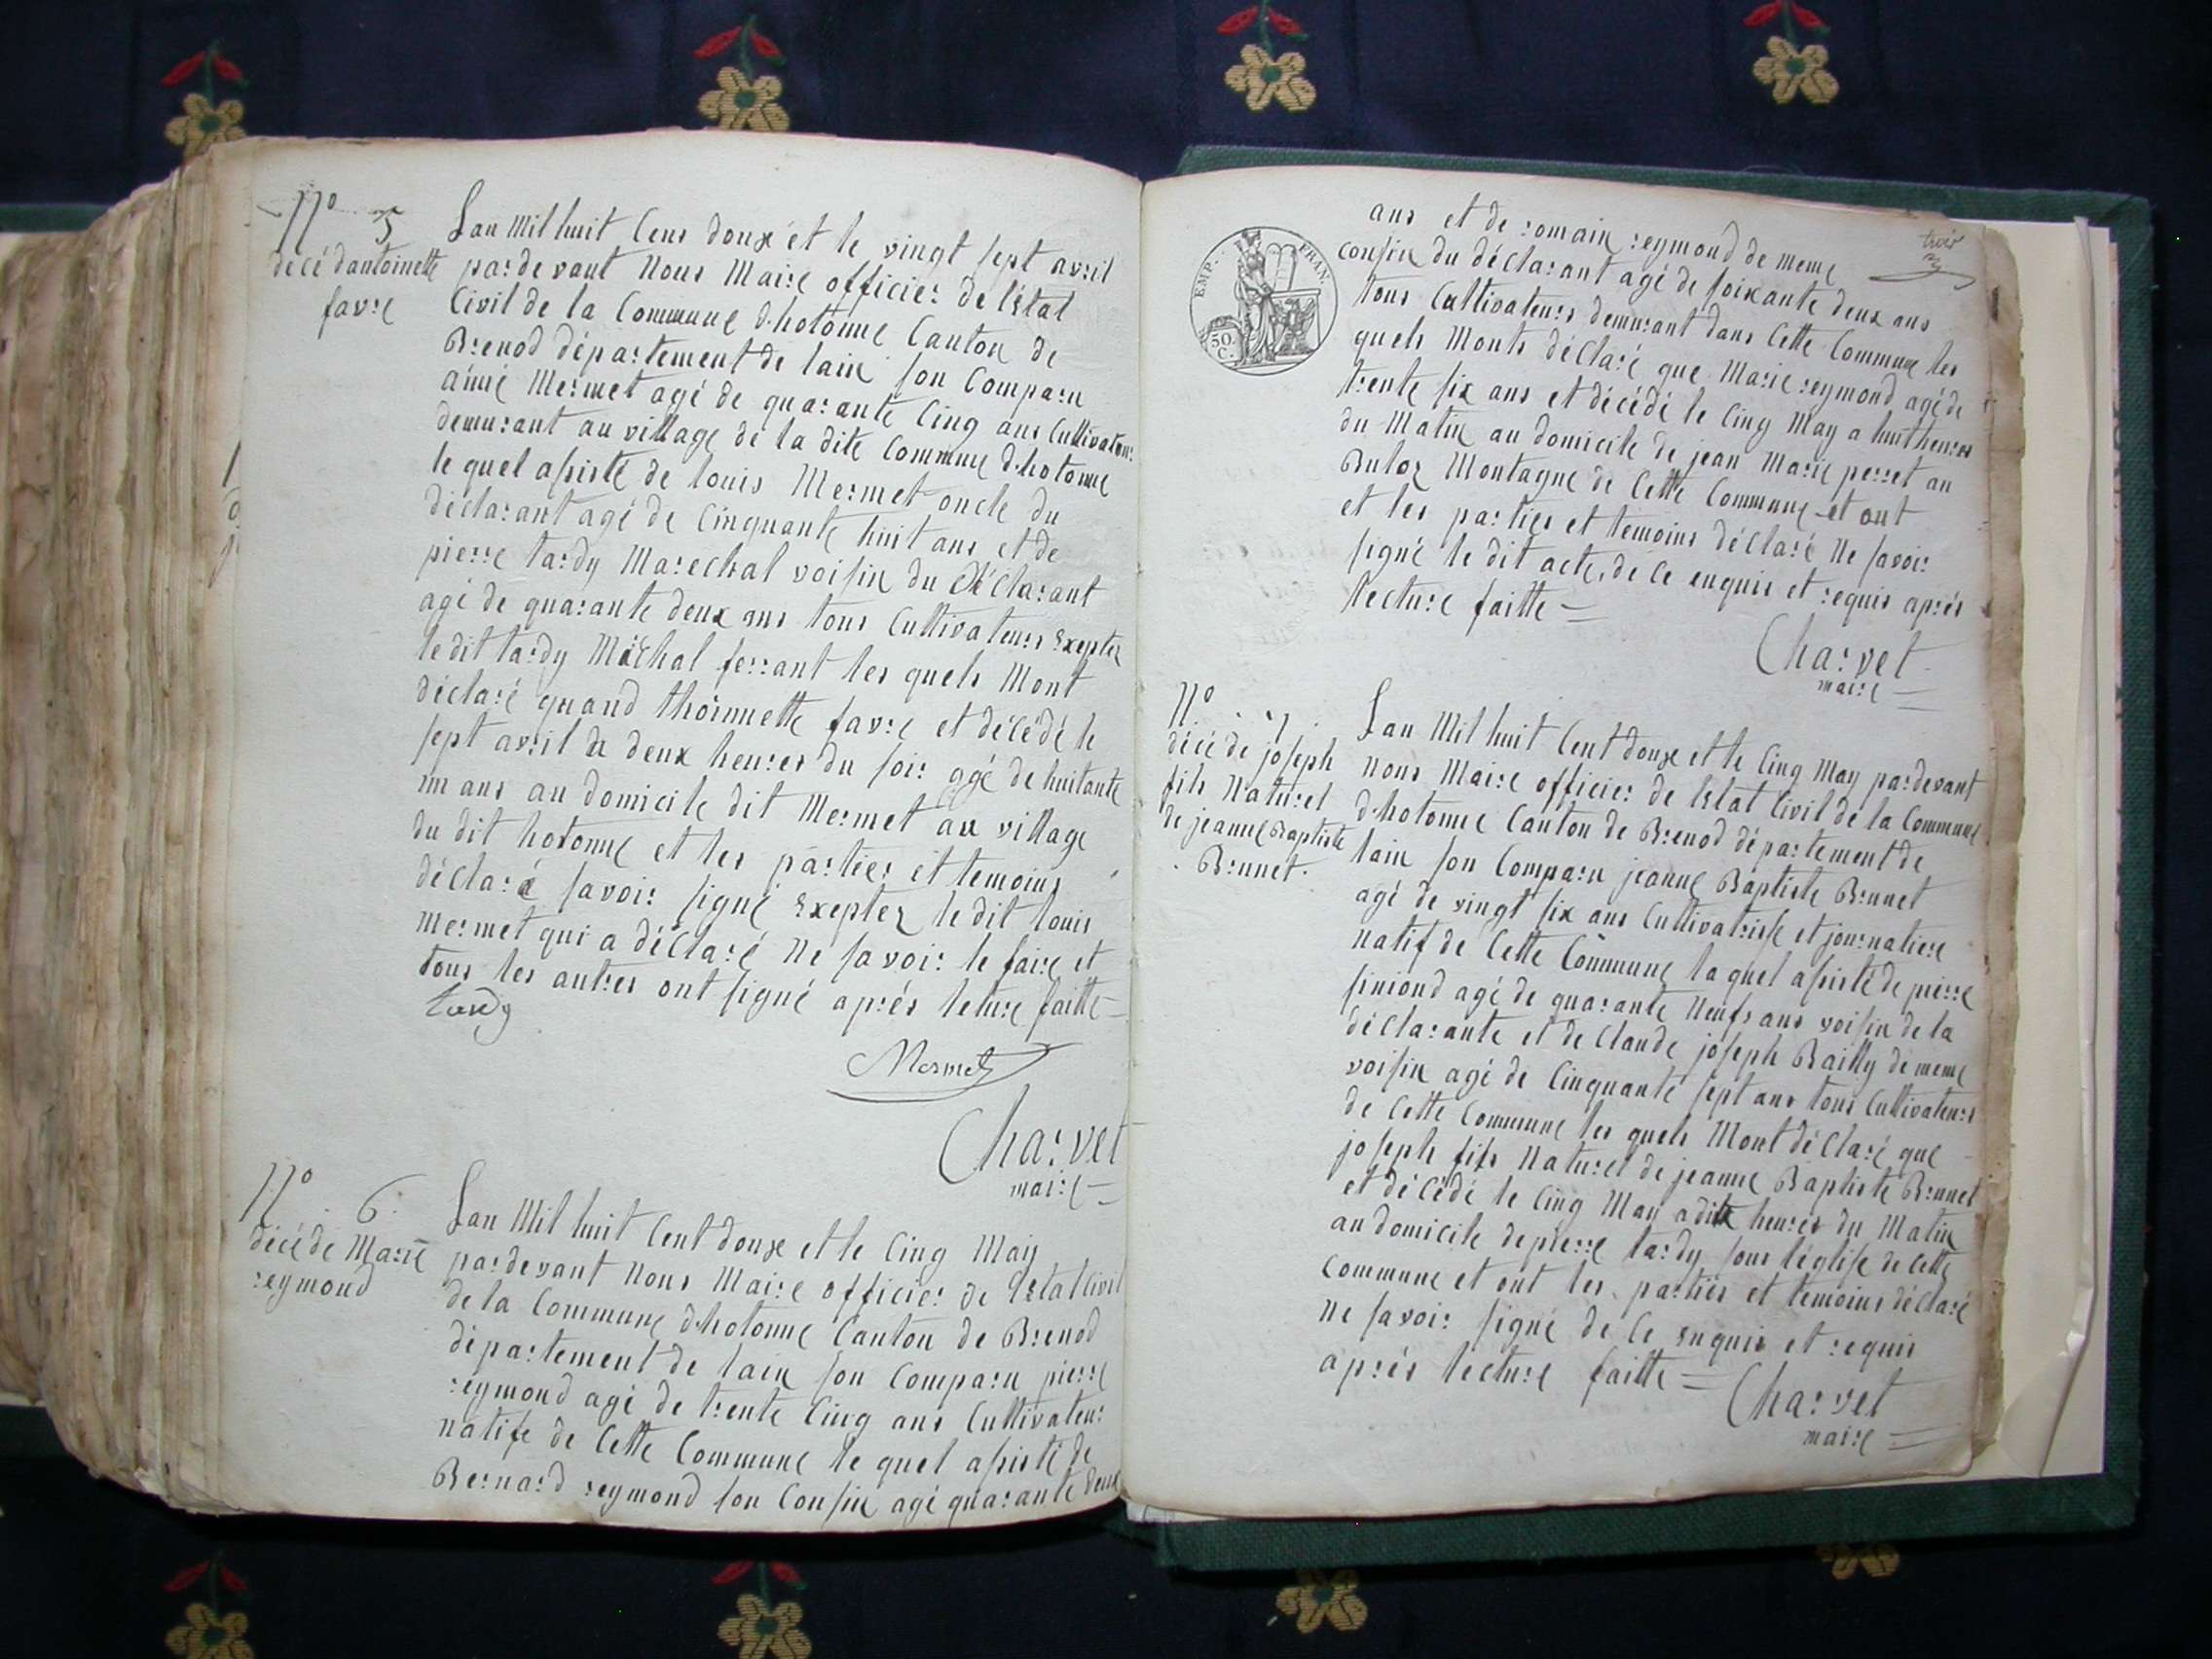 N° 5
décé dantoinette
favre
Lan Mil huit Cens douze et le vingt sept avril
pardevant Nous Maire officier de l'Etat
Civil de la Commune d'hotonne Canton de
Brenod département de lain son Comparu
aimé Mermet agé de quarante Cinq ans Cultivateur
demurant au village de la dite Commune d'hotonne
le quel asisté de louis Mermet oncle du
déclarant agé de Cinquante huit ans et de
pierre tardy Marechal voisin du déclarant
agé de quarante deux ans tous Cultivateurs Exeptez
le dit tardy Maichal ferrant les quels Mont
déclaré quand thoinnette favre et décédé le
sept avril a deux heures du soir agé de huitante
un ans au domicile dit Mermet au village
du dit hotonne et les parties et temoins
déclaré savoir signé Exeptez le dit louis
Mermet qui a déclaré Ne savoir le faire et
tous les autres ont signé aprés leture faitte =
tardy
Mermet
Charvet
maire =
N° 6.
décé de Marie
reymond
Lan Mil huit Cent douze et le Cinq May
pardevant Nous Maire officier de letat Civil
de la Commune d'hotonne Canton de Brenod
département de lain son Comparu pierre
reymond agé de trente Cinq ans Cultivateur
natife de Cette Commune le quel asisté de
Bernard reymond son Cousin agé quarante deux
trois
EMP. FRAN.
50.
C.
ans et de romain reymond de meme
Cousin du déclarant agé de soixante deux ans
tous Cultivateurs demurant dans Cette Commune les
quels Monts déclaré que Marie reymond agé de
trente six ans et décédé le Cinq May a huit heures
du Matin au domicile de jean Marie perret au
Buloz Montagne de Cette Commune et ont
et les parties et temoins déclaré Ne savoir
signé le dit acte, de Ce enquis et requis aprés
lecture faitte =
Charvet
maire =
N° 7.
décé de joseph
fils Naturel
de jeanne Baptiste
Brunet.
Lan Mil huit Cent douze et le Cinq May pardevant
Nous Maire officier de l'Etat Civil de la Commune
d'hotonne Canton de Brenod département de
lain son Comparu jeanne Baptiste Brunet
agé de vingt six ans Cultivatrisse et journaliere
natif de Cette Commune la quel asisté de pierre
siniond agé de quarante Neufs ans voisin de la
déclarante et de Claude joseph Bailly de meme
voisin agé de Cinquante sept ans tous Cultivateurs
de Cette Commune les quels Mont déclaré que
joseph fils Naturel de jeanne Baptiste Brunet
et décédé le Cinq May a dix heures du Matin
au domicile de pierre tardy sous léglise de Cette
Commune et ont les parties et temoins déclaré
Ne savoir signé de Ce enquis et requis
aprés lecture faitte =
Charvet
maire =